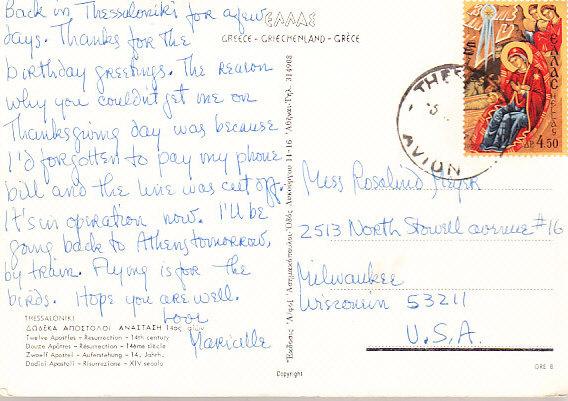 Back in Thessaloniki for a few
days. Thanks for the
birthday greetings. The reason
why you couldn't get me on
Thanksgiving day was because
I'd forgotten to pay my phone
bill and the line was cut off.
It's in operation now. I'll be
going back to Athens tomorrow,
by train. Flying is for the
birds. Hope you are well.
Love
Marielle
THESSALONIKI
ΔΩΔΕΚΑ ΑΠΟΣΤΟΛΟΙ ΑΝΑΣΤΑΣΗ 14ος αἰών
Twelve Apostles - Resurrection - 14th century
Douze Apôtres - Résurrection - 14ème siècle
Zwoelf Apostel - Auferstehung - 14. Jahrh.
Dodici Apostoli - Risurrezione - XIV secolo
ΕΛΛΑΣ
GREECE - GRIECHENLAND - GRÈCE
Ἀθῆναι-Τηλ. 314908
Copyright
ΕΛΛΑΣ
HELLAS
ΔΡ 4.50
AVION
Miss Rosalind
2513 North Stowell avenue #16
Milwaukee
Wisconsin 53211
U.S.A.
GRE 8